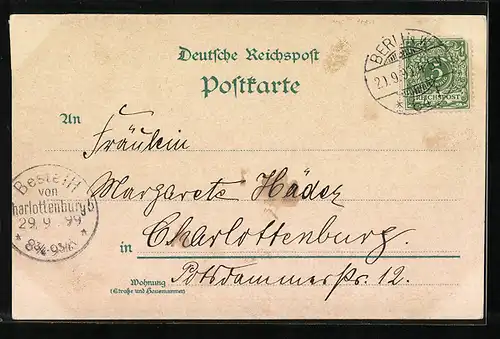 Deutsche Reichspost
Postkarte
BERLIN
5
REICHSPOST
An
Fräulein
Bestellt
von
Charlottenburg 5
29.9.99
8¾-9¾V.
Margarete Häder
in Charlottenburg.
Wohnung
(Straße und Hausnummer)
Potsdammerstr. 12.